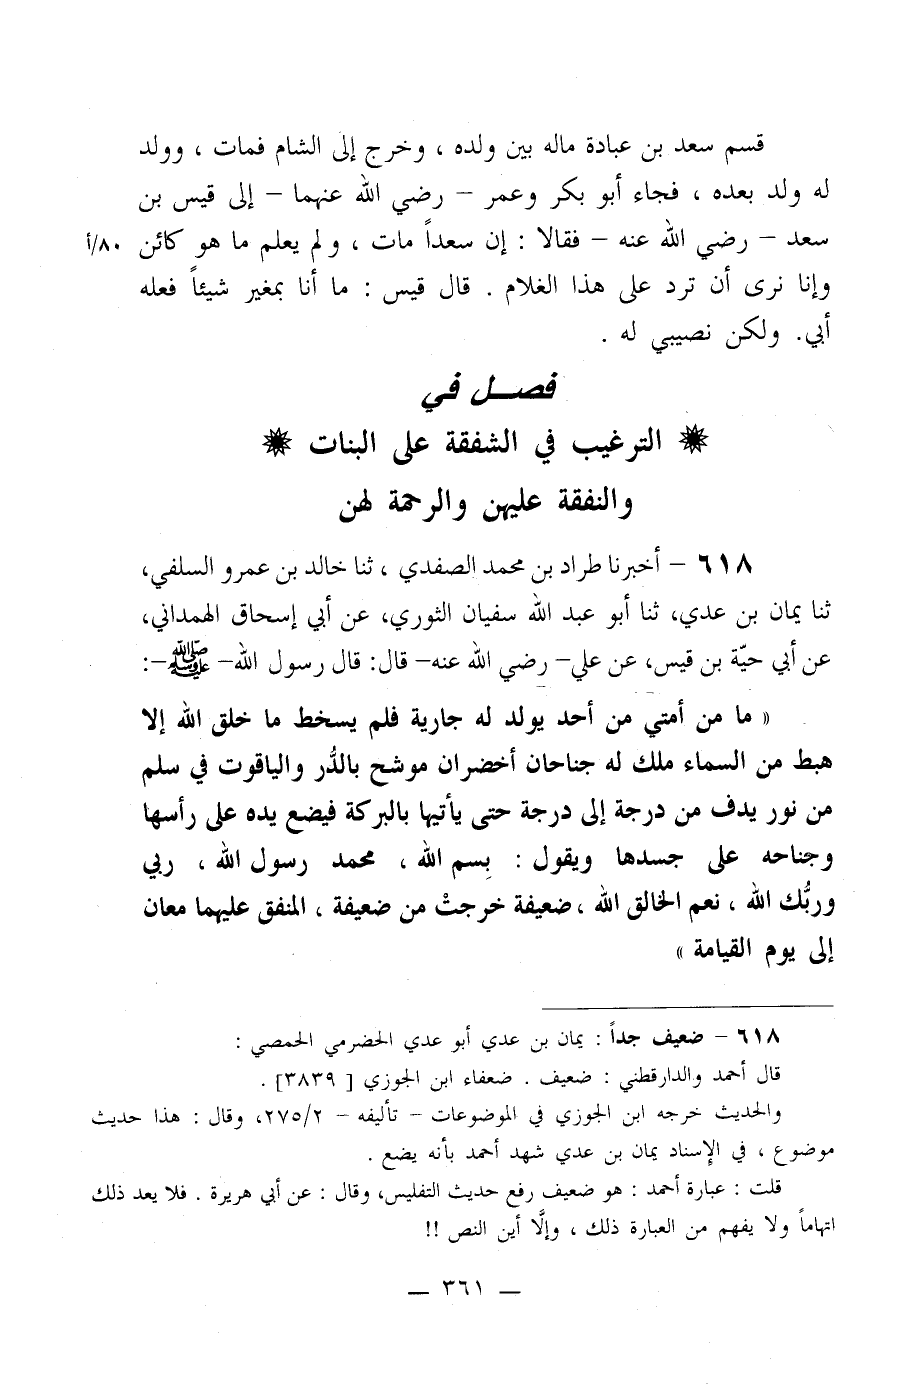 قسم سعد بن عبادة ماله بين ولده ، وخرج إلى الشام فمات ، وولد
له ولد بعده ، فجاء أبو بكر وعمر – رضي الله عنهما – إلى قيس بن
سعد – رضي الله عنه – فقالا : إن سعداً مات ، ولم يعلم ما هو كائن ٨٠/أ
وإنا نرى أن ترد على هذا الغلام . قال قيس : ما أنا بمغير شيئاً فعله
أبي. ولكن نصيبي له .
فصـــل في
الترغيب في الشفقة على البنات
والنفقة عليهن والرحمة لهن
٦١٨ – أخبرنا طراد بن محمد الصفدي ، ثنا خالد بن عمرو السلفي،
ثنا يمان بن عدي، ثنا أبو عبد الله سفيان الثوري، عن أبي إسحاق الهمداني،
عن أبي حيّة بن قيس، عن علي– رضي الله عنه– قال: قال رسول الله– ﷺ–:
« ما من أمتي من أحد يولد له جارية فلم يسخط ما خلق الله إلا
هبط من السماء ملك له جناحان أخضران موشح بالدُّر والياقوت في سلم
من نور يدف من درجة إلى درجة حتى يأتيها بالبركة فيضع يده على رأسها
وجناحه على جسدها ويقول : بِسم الله ، محمد رسول الله ، ربي
وربُّك الله ، نعم الخالق الله ، ضعيفة خرجتْ من ضعيفة ، المنفق عليهما معان
إلى يوم القيامة »
٦١٨ – ضعيف جداً : يمان بن عدي أبو عدي الحضرمي الحمصي :
قال أحمد والدارقطني : ضعيف . ضعفاء ابن الجوزي [ ٣٨٣٩] .
والحديث خرجه ابن الجوزي في الموضوعات – تأليفه – ٢٧٥/٢، وقال : هذا حديث
موضوع ، في الإسناد يمان بن عدي شهد أحمد بأنه يضع .
قلت : عبارة أحمد : هو ضعيف رفع حديث التفليس، وقال : عن أبي هريرة . فلا يعد ذلك
اتهاماً ولا يفهم من العبارة ذلك ، وإلَّا أين النص !!
– ٣٦١ –